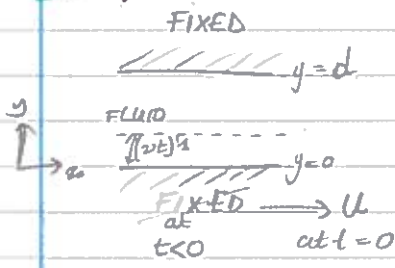 FIXED
y = d
y
FLUID
(νt)^½
x
y=0
FIXED U
at
t<0 at t = 0